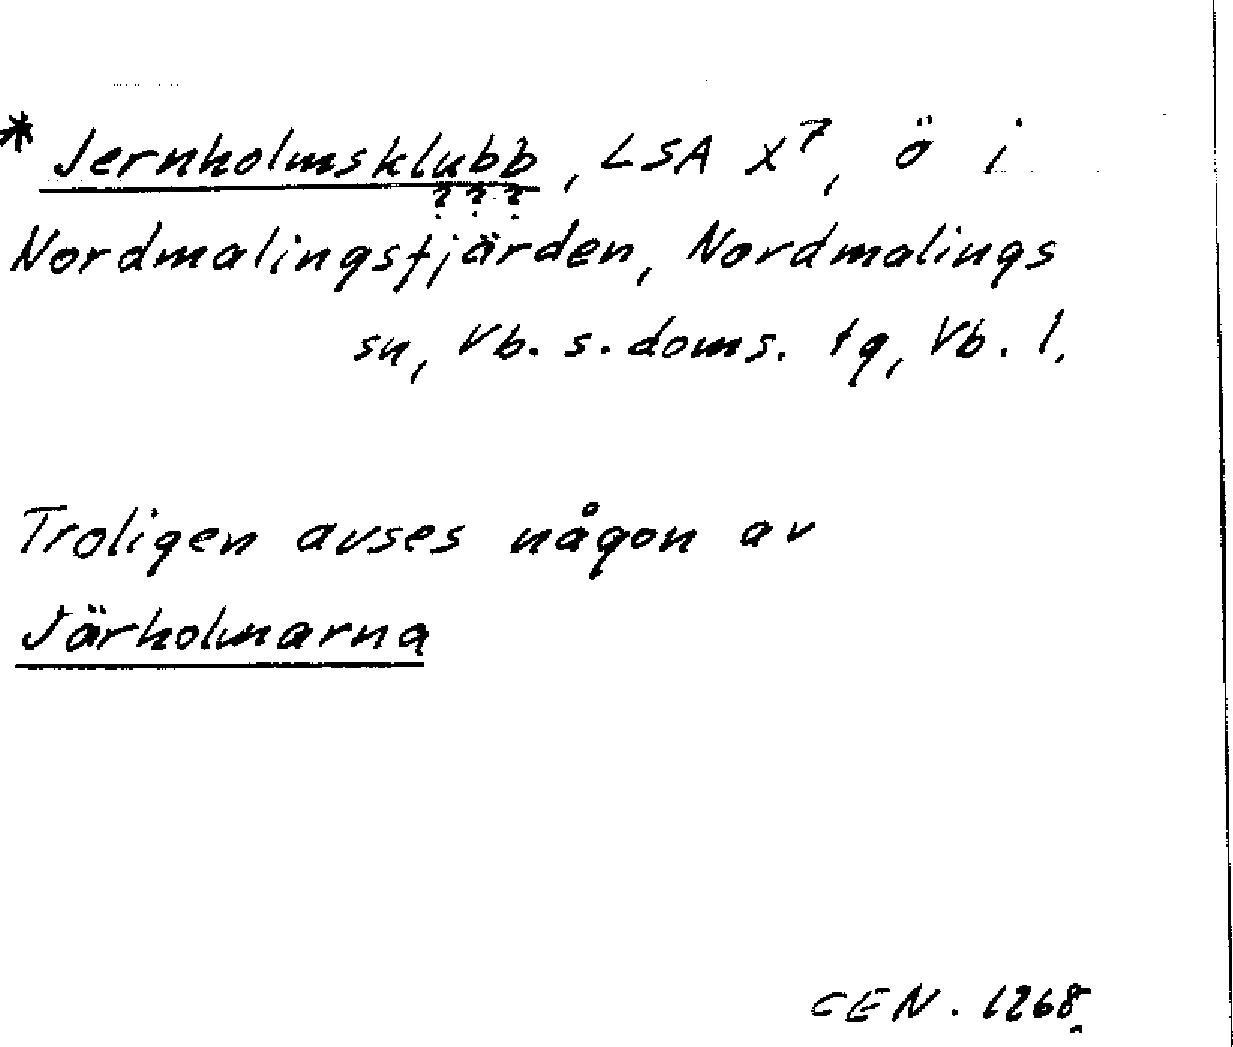 * Jernholmsklubb, LSA X7, ö i
? ? ?
Nordmalingsfjärden, Nordmalings
sn, Vb. s. doms. tg, Vb. l.
Troligen avses någon av
Järholmarna
CEN. 1268